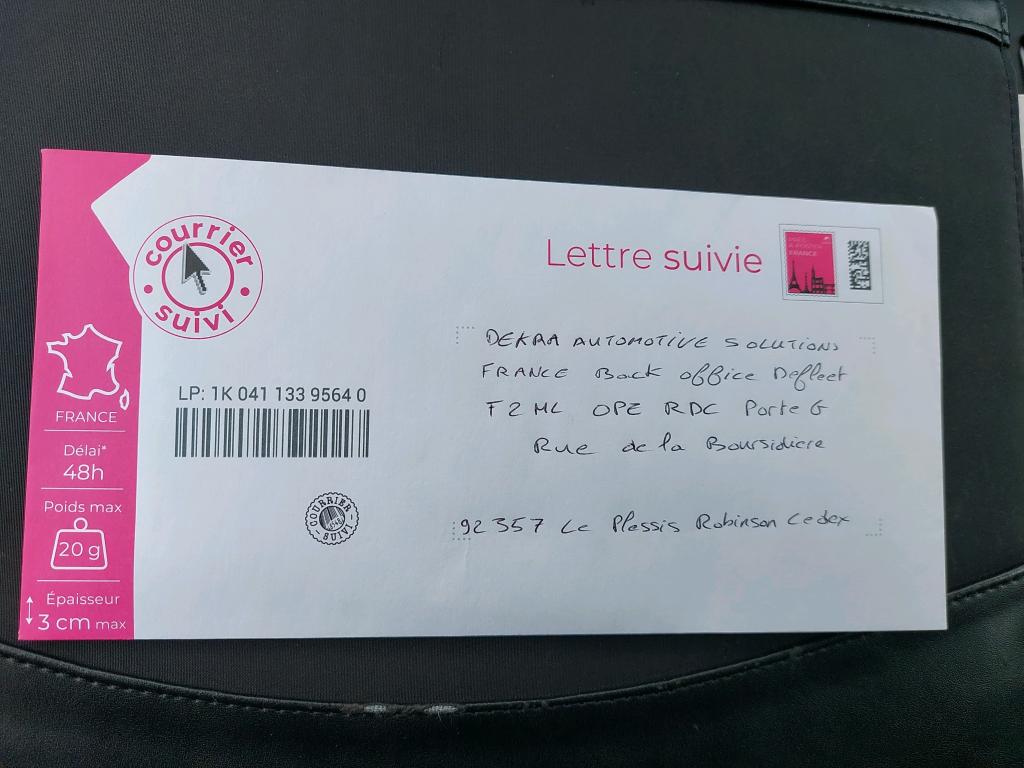 courrier
suivi
FRANCE
Délai*
48h
Poids max
20 g
Épaisseur
3 cm max
LP: 1K 041 133 9564 0
COURRIER
SUIVI
Lettre suivie
FRANCE
DEKRA AUTOMOTIVE SOLUTIONS
FRANCE Back office Defleet
F2ML OPE RDC Porte G
Rue de la Boursidiere
92 357 Le Plessis Robinson Cedex